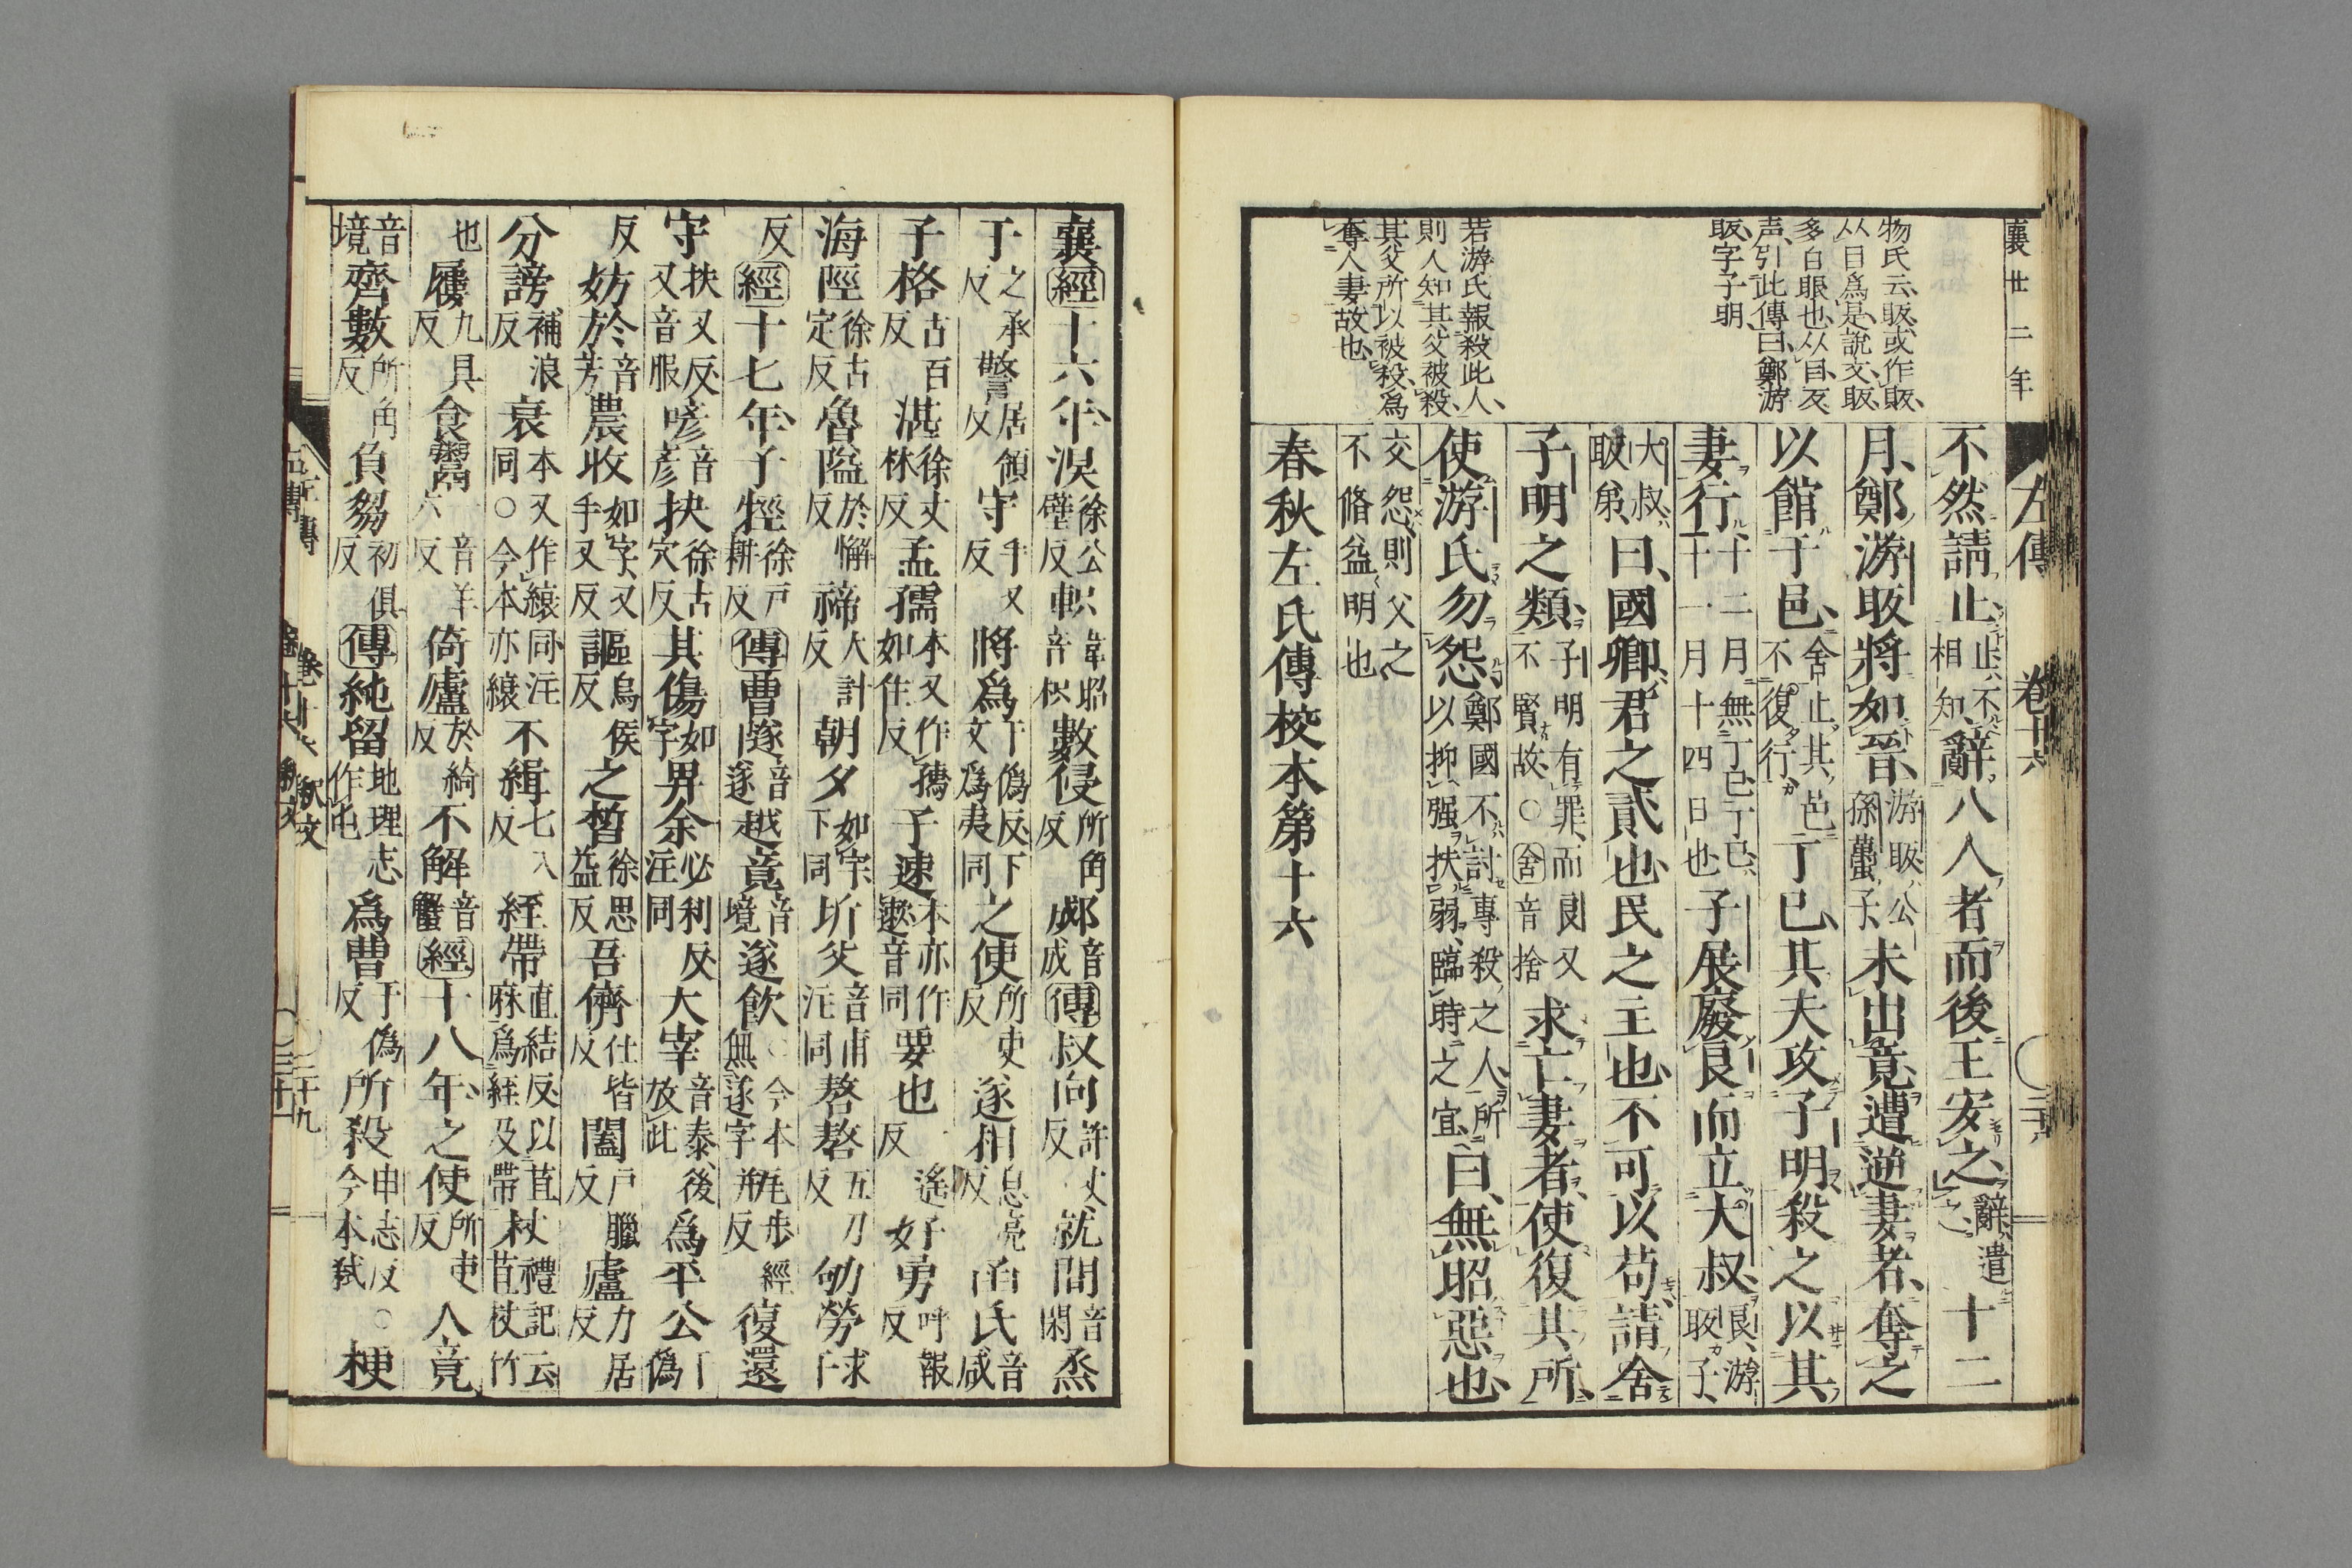 襄廿二年
左傳 卷十六
物氏云、眅、或作販、
从日爲是、說文、眅、
多白眼也、从目反
声、引此傳曰、鄭游
眅、字子明、
若游氏報殺此人、
則人知其父被殺、
其父所以被殺、爲
奪人妻故也、
不然請止、止、不相知、辭八人者而後王安之、辭、遣之、十二
月、鄭游眅將如晉、游眅、公孫蠆子、未出竟、遭逆妻者、奪之
以館于邑、舍止其邑、不復行、丁巳、其夫攻子明、殺之、以其
妻行、十二月無丁巳、丁巳、十一月十四日也、子展廢良而立大叔、良、游眅子、
大叔、眅弟、曰、國卿、君之貳也、民之主也、不可以苟、請舍
子明之類、子明有罪、而良又不賢故、○舍音捨 求亡妻者、使復其所、
使游氏勿怨、鄭國不討專殺之人、所以抑强扶弱、臨時之宜、曰、無昭惡也、
交怨、則父之不脩益明也
春秋左氏傳校本第十六
襄經十六年、湨徐公壁反軹韋昭音枳數侵所角反郕音成傳叔向許丈反就閒音閑烝
于之承反警居領反守手又反將爲于僞反下文爲夷同之使所吏反遂相息亮反函氏音咸
子格古百反湛徐丈林反孟孺本又作孺如住反子速本亦作遬音同要也一遙反好勇呼報反
海陘徐古定反魯隘於懈反禘大計反朝夕如字下同圻父音甫注同嗸嗸五刀反劬勞求于
反經十七年、子牼徐戶耕反傳曹隧音遂越竟音境遂飲○今本無遂字瓶步經反復還
守扶又反又音服喭音彥抉徐古穴反其傷如字畀余必利反注同大宰音泰、後放此爲平公于僞
反妨於音芳農收如字、又手又反謳烏侯反之晳徐思益反吾儕仕皆反闔戶臘反廬力居反
分謗補浪反衰本又作縗同○今本亦縗同注不緝七入反絰帶直結反以苴麻爲絰及帶杖禮記云苴杖竹
也屨九具反食鬻音羊六反倚廬於綺反不解音蟹經十八年、之使所吏反人竟
音境齊數所角反負芻初俱反傳純留地理志作屯爲曹于僞反所殺申志反○今本弒梗